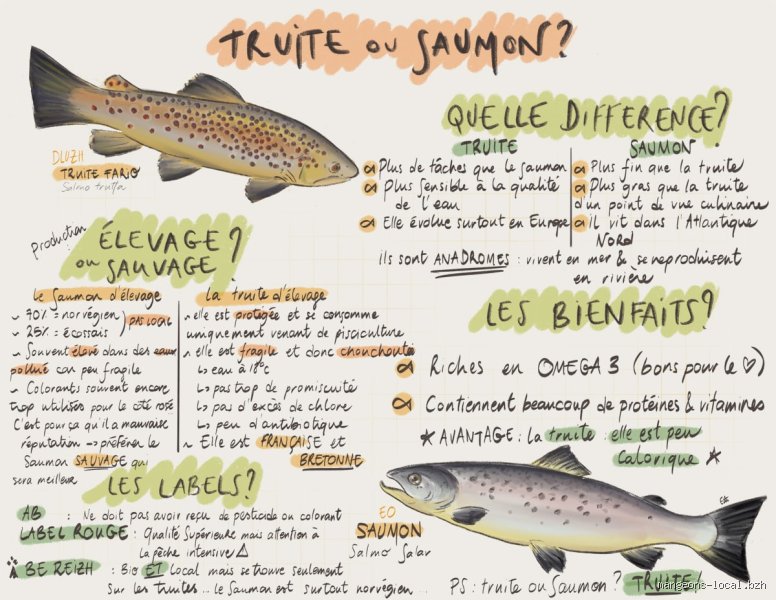 TRUITE OU SAUMON?
DLUZH
TRUITE FARIO
Salmo trutta
QUELLE DIFFERENCE?
TRUITE
Plus de tâches que le saumon
Plus sensible à la qualité
de l'eau
Elle évolue surtout en Europe
SAUMON
Plus fin que la truite
Plus gras que la truite
d'un point de vue culinaire
il vit dans l'Atlantique
NORD
ils sont ANADROMES : vivent en mer & se reproduisent
en rivière
production
ÉLEVAGE?
ou SAUVAGE
le saumon d'élevage
~ 70% = norvégien
~ 25% = écossais
PAS LOCAL
~ Souvent élevé dans des eaux
pollué car peu fragile
~ Colorants souvent encore
trop utilisés pour le côté rosé
C'est pour ça qu'il a mauvaise
réputation → préférer le
Saumon SAUVAGE qui
sera meilleur
la truite d'élevage
~ elle est protégée et se consomme
uniquement venant de pisciculture
~ elle est fragile et donc chouchoutée
↳ eau à 18°c
↳ pas trop de promiscuité
↳ pas d'excès de chlore
↳ peu d'antibiotique
~ Elle est FRANÇAISE et
BRETONNE
LES BIENFAITS?
Riches en OMEGA 3 (bons pour le ♡)
Contiennent beaucoup de protéines & vitamines
★ AVANTAGE : la truite : elle est peu
calorique ★
LES LABELS?
AB : Ne doit pas avoir reçu de pesticide ou colorant
LABEL ROUGE : Qualité Supérieure mais attention à
la pêche intensive ⚠
BE REIZH : Bio ET Local mais se trouve seulement
sur les truites... le Saumon est surtout norvégien...
EO
SAUMON
Salmo Salar
PS : truite ou Saumon ? TRUITE!
mangeons-local.bzh